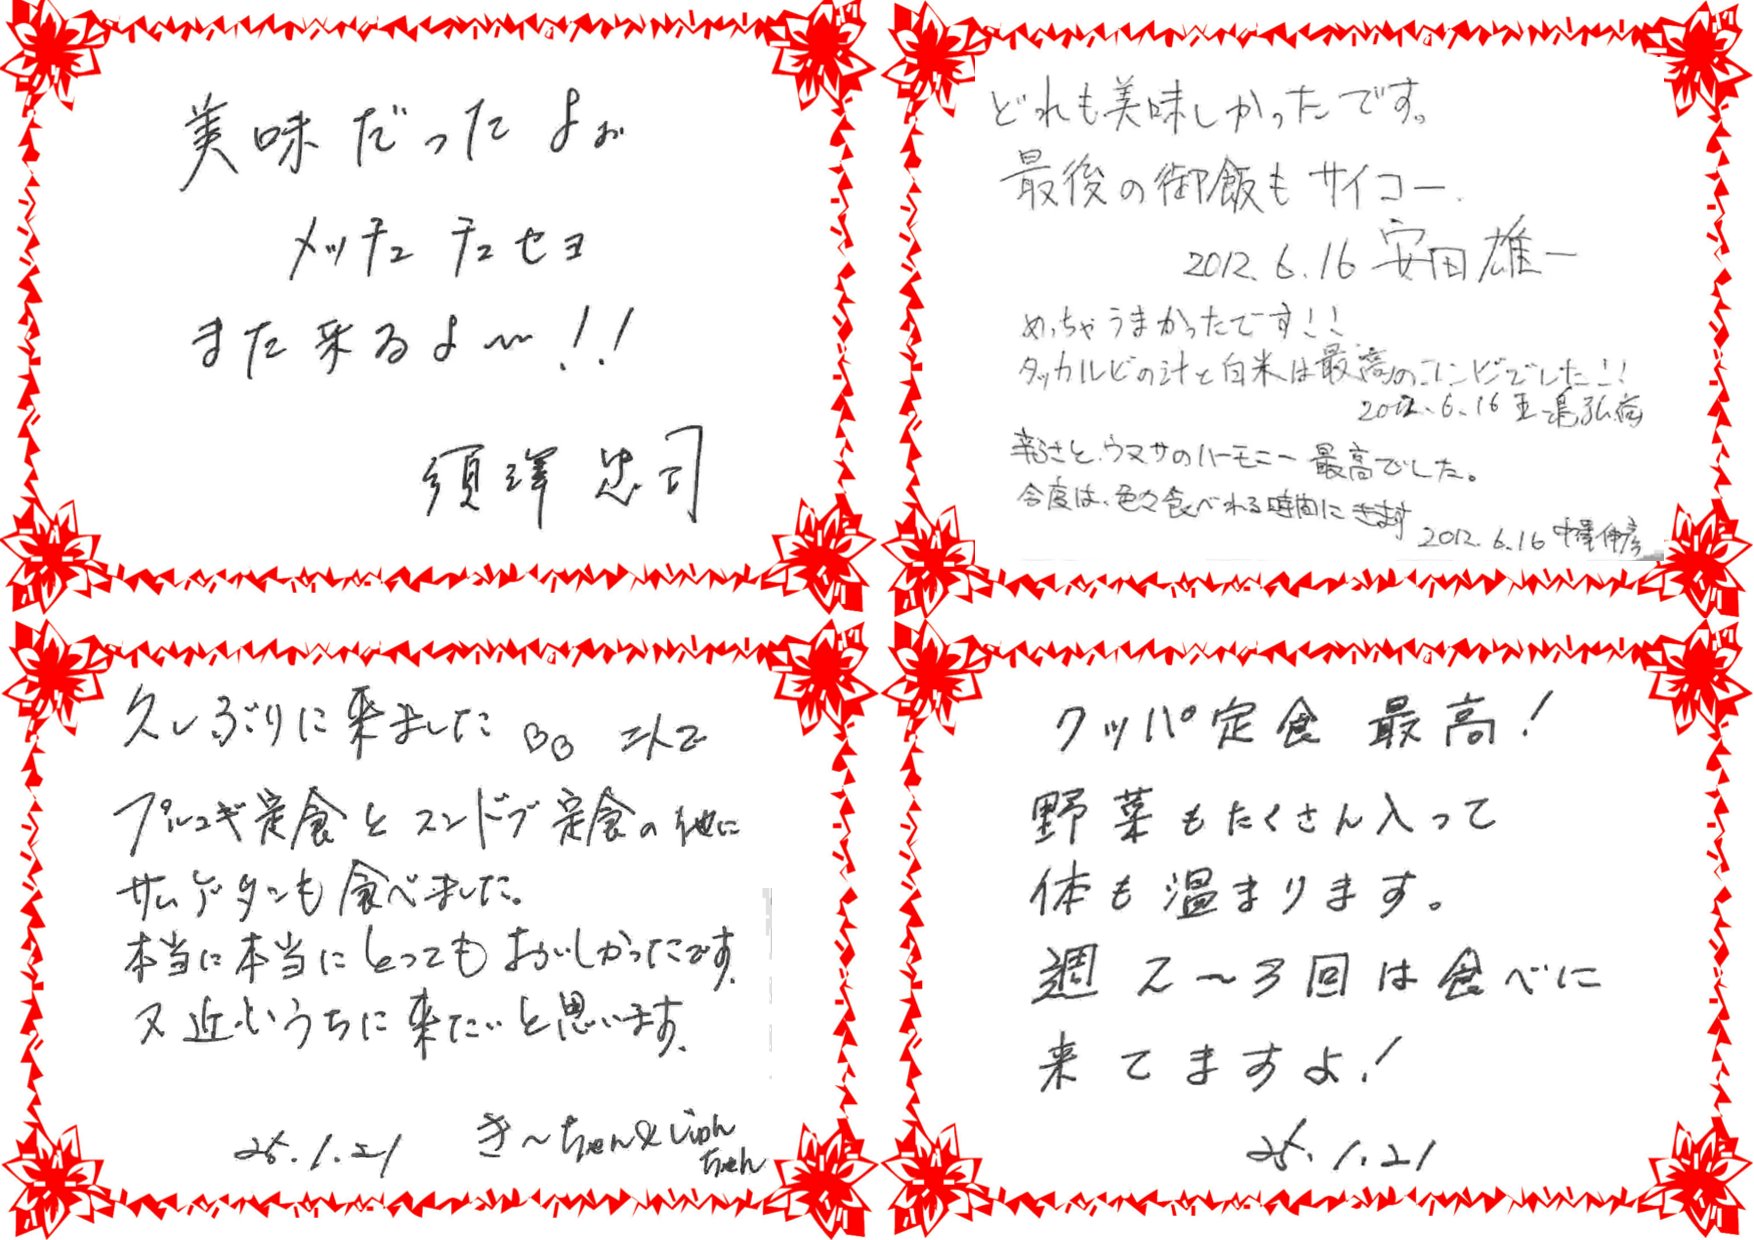 美味だったよぉ
メッチュ チュセヨ
また来るよ〜!!
須澤 忠司
どれも美味しかったです。
最後の御飯もサイコー.
2012.6.16 安田雄一
めっちゃうまかったです!!
タッカルビの汁と白米は最高のコンビでした!!
2012.6.16 玉
辛さと、ウマサのハーモニー 最高でした。
今度は、色々食べれる時間にきます
2012.6.16 中澤伸彦
久しぶりに来ました 二人で
プルコギ定食とスンドブ定食の他に
サムゲタンも食べました。
本当に本当にとってもおいしかったです。
又近いうちに来たいと思います。
25.1.21 き〜ちゃん&じゅん
ちゃん
クッパ定食 最高!
野菜もたくさん入って
体も温まります。
週2〜3回は食べに
来てますよ!
25.1.21